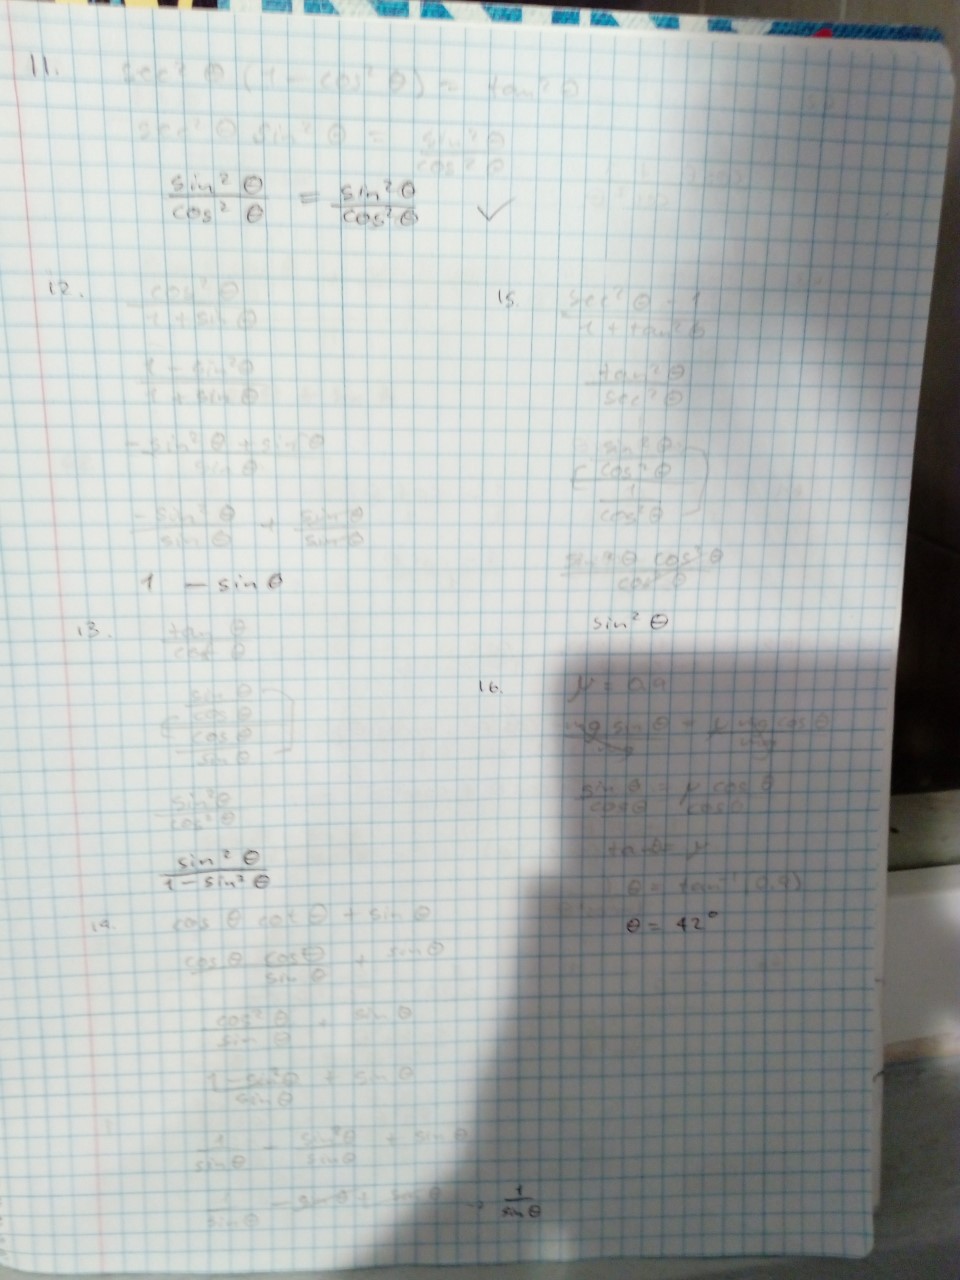 11. sec² θ (1 - cos² θ) = tan² θ
sec² θ sin² θ = sin² θ / cos² θ
sin² θ / cos² θ = sin² θ / cos² θ ✓
12. cos² θ / 1 + sin θ
1 - sin² θ / 1 + sin θ
- sin² θ + sin θ / sin θ
- sin² θ / sin θ + sin θ / sin θ
1 - sin θ
13. tan θ / cot θ
sin θ / cos θ / cos θ / sin θ
sin² θ / cos² θ
sin² θ / 1 - sin² θ
14. cos θ cot θ + sin θ
cos θ cos θ / sin θ + sin θ
cos² θ / sin θ + sin θ
1 - sin² θ / sin θ + sin θ
1 / sin θ - sin² θ / sin θ + sin θ
1 / sin θ - sin θ + sin θ → 1 / sin θ
15. sec² θ - 1 / 1 + tan² θ
tan² θ / sec² θ
sin² θ / cos² θ / 1 / cos² θ
sin² θ cos² θ / cos² θ
sin² θ
16. μ = 0.9
mg sin θ = μ mg cos θ / mg
sin θ / cos θ = μ cos θ / cos θ
tan θ = μ
θ = tan⁻¹ (0.9)
θ = 42°